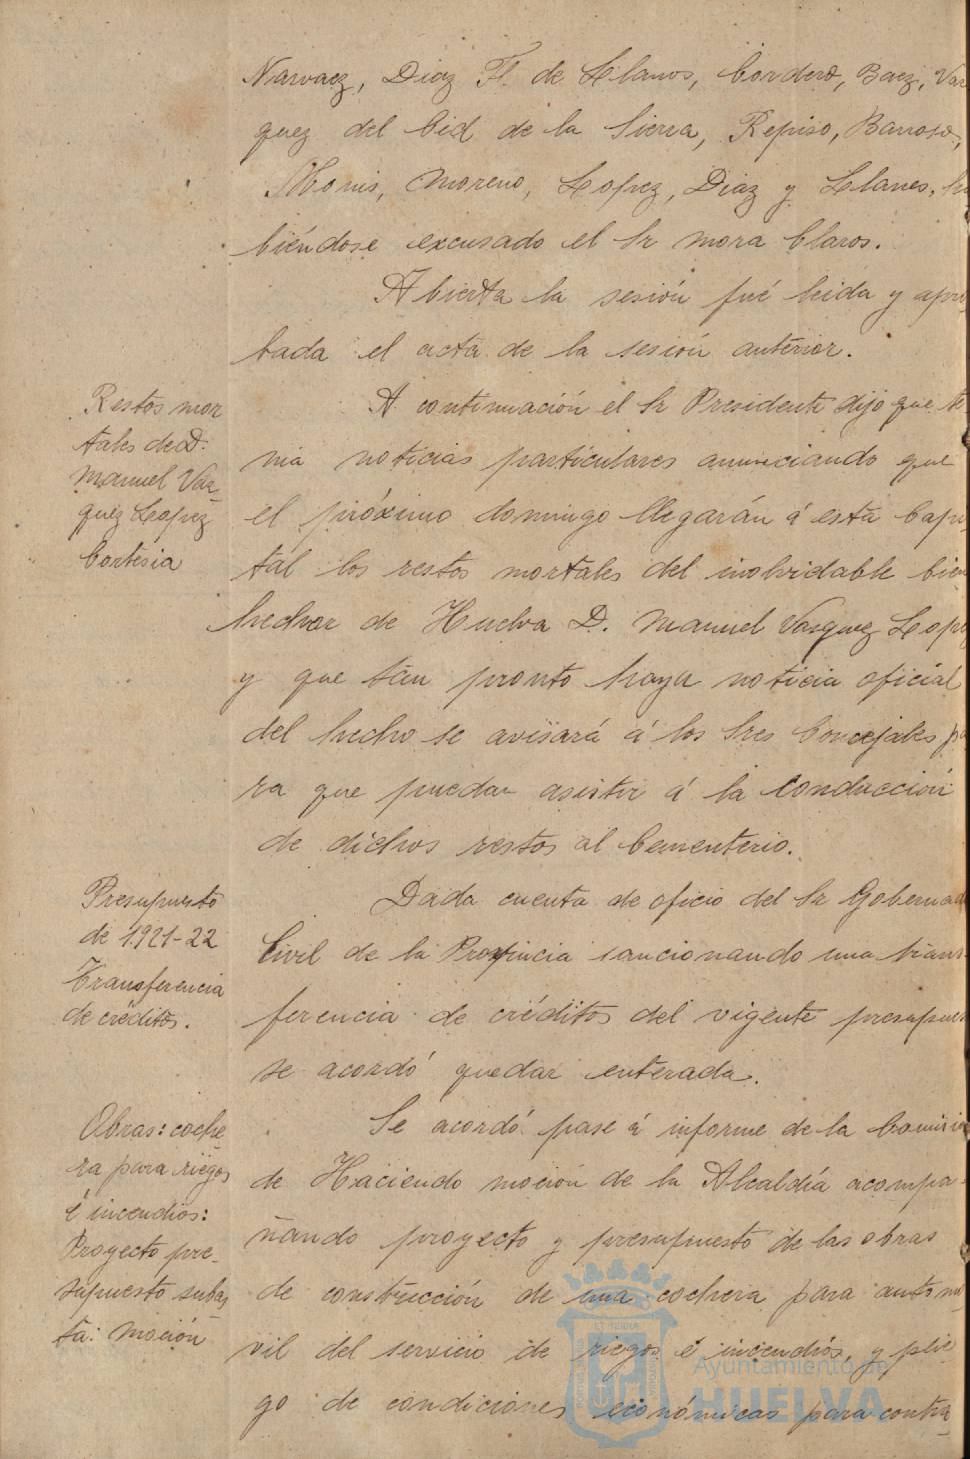 Narvaez, Diaz F. de Llanos, Cordero, Baez, Vaz
quez del Cid de la Sierra, Repiso, Barroso,
Monis, Moreno, Lopez, Diaz y Llanes, ha
biéndose excusado el Sr Mora Claros.
Abierta la sesión fué leida y apro
bada el acta de la sesión anterior.
Restos mor
tales de D.
Manuel Vaz-
quez Lopez
Cortesia
A continuación el Sr Presidente dijo que te-
nia noticias particulares anunciando que
el próximo domingo llegarán á esta Capi-
tal los restos mortales del inolvidable bien
hechor de Huelva D. Manuel Vasquez Lopez
y que tan pronto haya noticia oficial
del hecho se avisará á los Sres Concejales pa
ra que puedan asistir á la conducción
de dichos restos al Cementerio.
Presupuesto
de 1921-22
Transferencia
de créditos.
Dada cuenta de oficio del Sr Gobernad
Civil de la Provincia sancionando una trans-
ferencia de créditos del vigente presupues
se acordó quedar enterada.
Obras: coche
ra para riegos
é incendios:
Proyecto pre-
supuesto subas
ta: Moción
Se acordó pase á informe de la Comisión
de Haciendo moción de la Alcaldía acompa-
ñando proyecto y presupuesto de las obras
de construcción de una cochera para automó
vil del servicio de riegos é incendios, y plie-
go de condiciones económicas para contra-
Ayuntamiento de
HUELVA